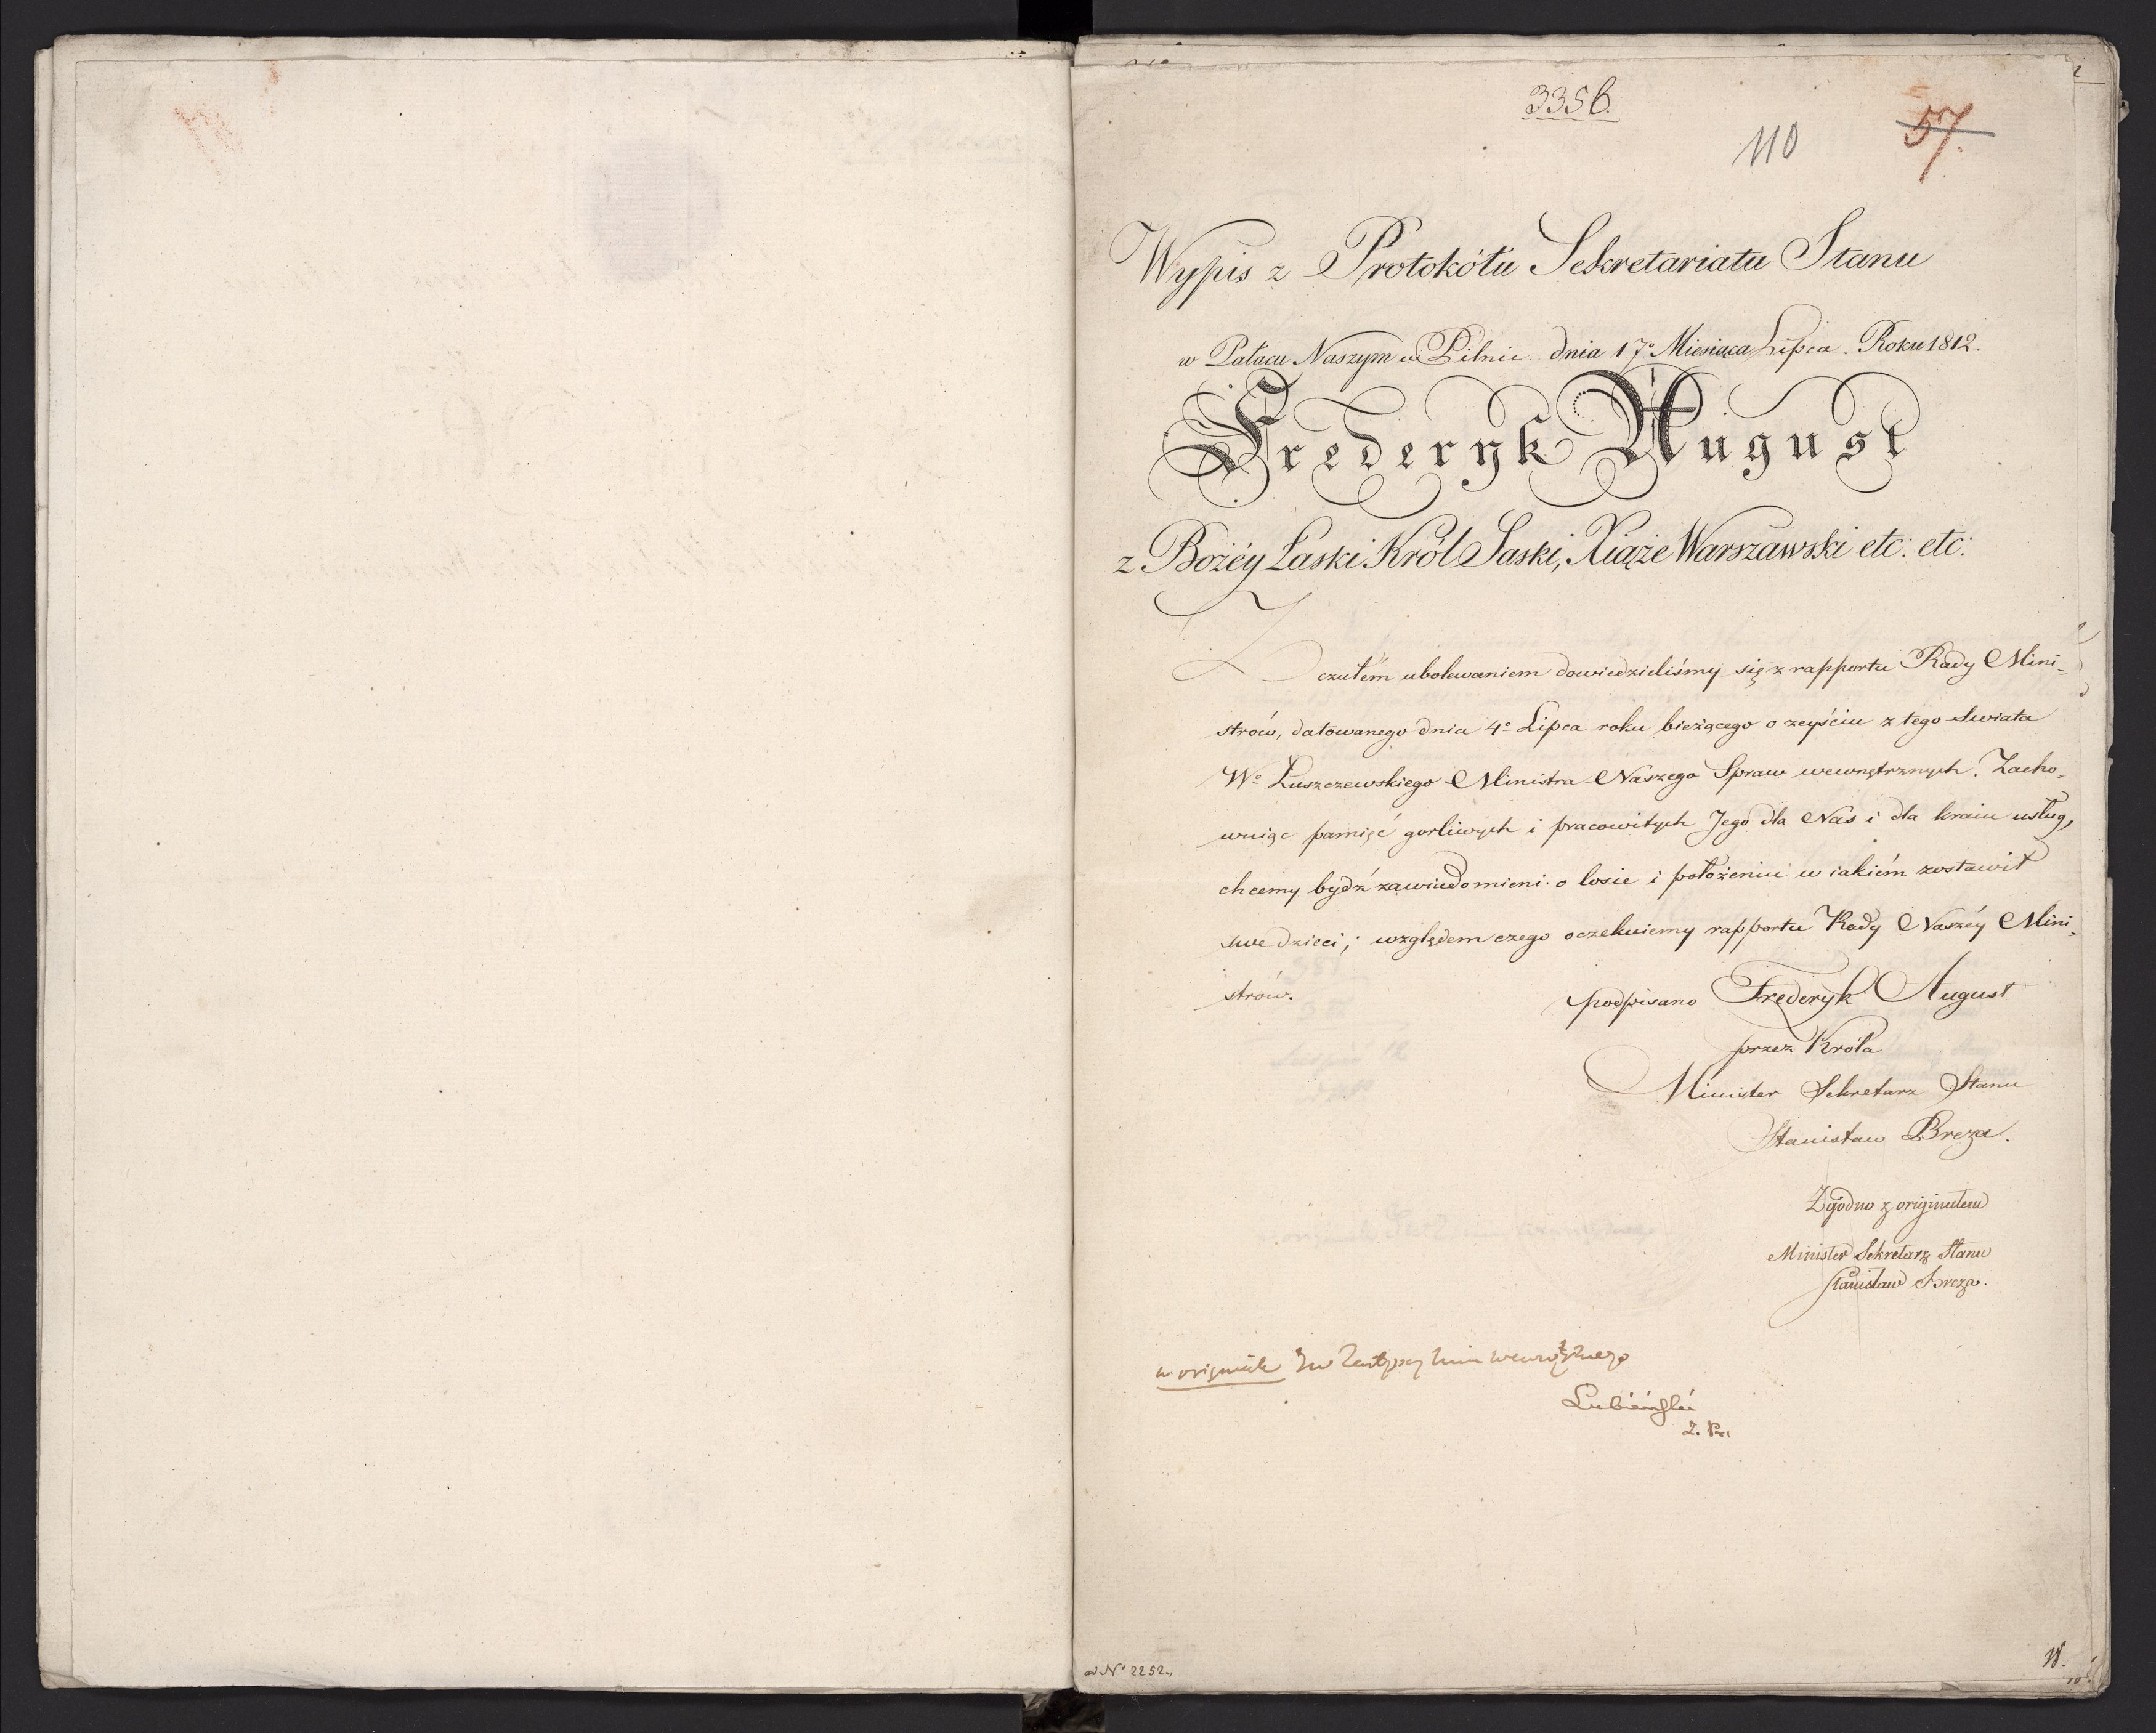 3356.
110
57.
Wypis z Protokółu Sekretariatu Stanu
w Pałacu Naszym w Pilnic dnia 17º Miesiąca Lipca. Roku 1812.
Frederyk August
z Bożéy Łaski Król Saski, Xiąże Warszawski etc: etc:
Z czułem ubolewaniem dowiedzieliśmy się z rapportu Rady Mini-
strów, datowanego dnia 4º Lipca roku bieżącego o zeyściu z tego Swiata
Wº Łuszczewskiego Ministra Naszego Spraw wewnętrznych. Zacho-
wuiąc pamięć gorliwych i pracowitych Jego dla Nas i dla kraiu usług,
chcemy bydź zawiadomieni o losie i położeniu w iakiém zostawił
swe dzieci; względem czego oczekuiemy rapportu Rady Naszéy Mini-
strów.
podpisano Frederyk August
przez Króla
Minister Sekretarz Stanu
Stanisław Breza.
Zgodno z originałem
Minister Sekretarz Stanu
Stanisław Breza.
w originale
Lubieński
ad Nº 2252.